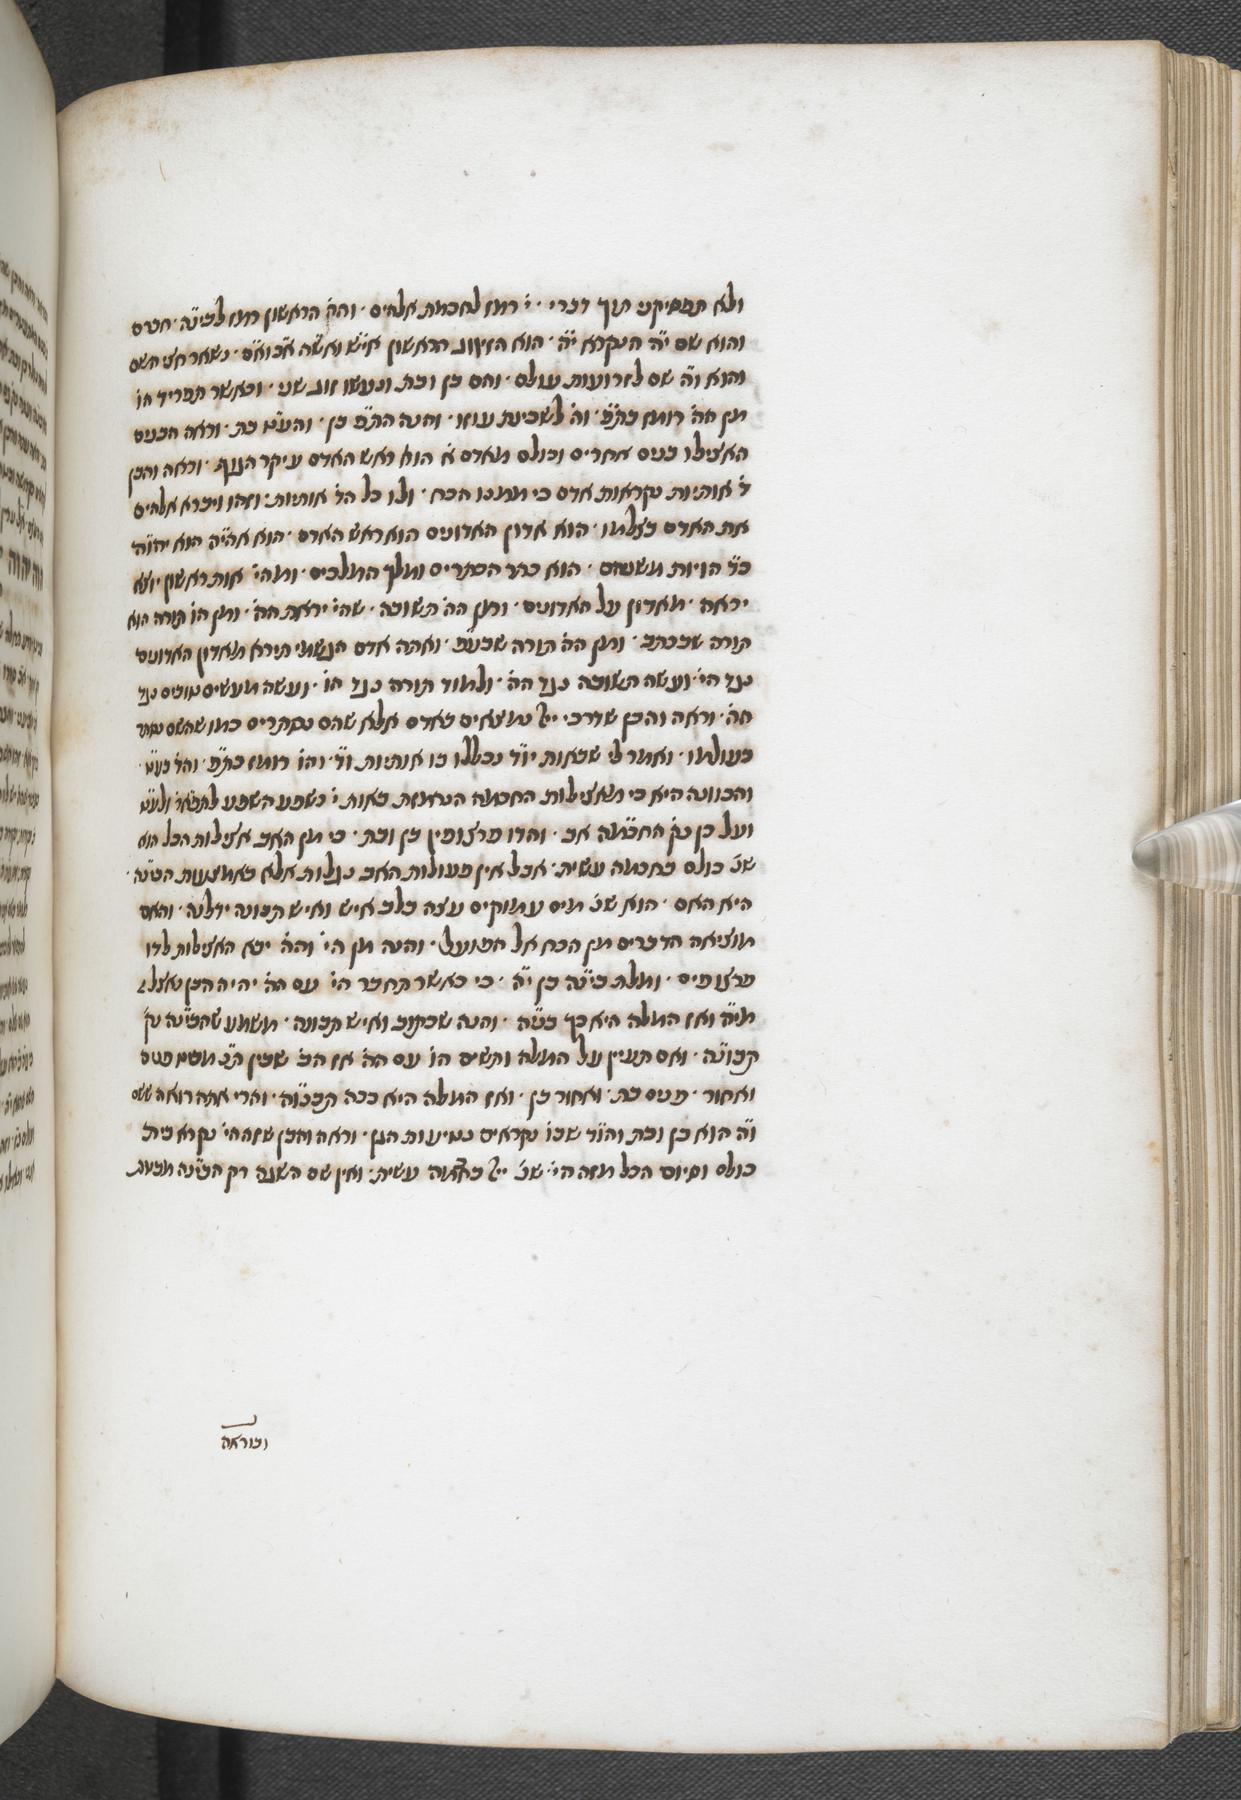 ולא תפסיקני תוך דברי · י' רמז לחכמת אלהים · והה' הראשון רמז לבינה · חברם
והוא שם י"ה הנקרא י"ה · הוא הזיווג הראשון אי"ש ואש"ה א"ב וא"ם · נשאר חצי השם
והוא ו"ה שם לזרועות עולם · והם בן ובת ונעשו זוג שני · וכאשר תפריד הו'
מן הה' רומז בת"ת · וה' לשכינת עוזו · והנה הת"ת בן · והעט' בת · וראה הבנים
האצילו בנים אחרים וכולם מאדם א' הוא ראש האדם עיקר הגוף · וראה והבן
ד' אותיות נקראות אדם כי ממנו הכח · ולו כל הד' אותיות · וזהו ויברא אלהים
את האדם בצלמו · הוא אדון האדונים הוא ראש האדם · הוא אהי"ה הוא יהו"ה
כ"ד הויות משמהם · הוא כתר הכתרים ומלך המלכים · ומהי' אות ראשון יוצא
יראה · מאדון על האדונים · ומן הה' תשובה · שהי' יראת הה' · ומן הו' תורה הוא
תורה שבכתב · ומן הה' תורה שבע"פ · ואתה אדם הגשמי תירא מאדון האדונים
כנגד הי' ועשה תשובה כנגד הה' · ולמוד תורה כנגד הו' · ועשה מעשים טובים כנגד
הה' · וראה והבן שדרכי יי' נמצאים באדם אלא שהם נסתרים כמו שהשם נסתר
בעולמו · ואמר לי שבאות יו"ד נכללו בו אותיות ו"ד · והו' רומז בת"ת · והד' בעט' ·
והכוונה היא כי מאצילות החכמה הנרמזת באות י' נשפע השפע לתפאר' ולעט'
ועל כן נק' החכמה אב · והדו פרצופין בן ובת · כי מן האב אצילות הכל הוא
שנ' כולם בחכמה עשית · אבל אין פעולות האב נגלות אלא באמצעות הבינה ·
היא האם · הוא שנ' מים עמוקים עצה בלב איש ואיש תבונה ידלנה · והאם
מוציאה הדברים מן הכח אל הפועל · והנה מן הי' והה' יבא האצילות לדו
פרצופים · ומלת בינה בן י"ה · כי כאשר תחבר הי' עם הה' יהיה הבן נאצל
מי"ה ואז המלה היא כך בינה · והנה שכתוב ואיש תבונה · משמע שהבינה נק'
תבונה · ואם תעיין על המלה ותשים הו' עם הה' אז הב' שבין הת' פנים
ואחור · פנים בת · ואחור בן · ואז המלה היא ככה תבונה · והרי אתה רואה ששם
ו"ה הוא בן ובת והו"ד שבו נקראים נטיעות הגן · וראה והבן שזה הי' נקרא בית
כולם וסיום הכל מזה הי' · שנ' יי' בחכמה עשית · ואין שם השגה רק הבינה
ובוראה